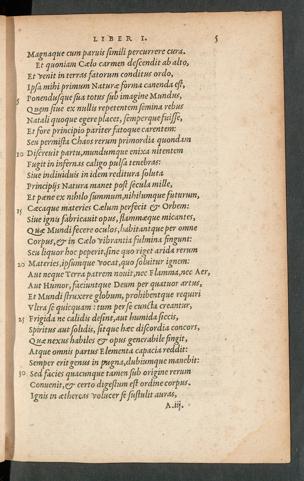 LIBER I. 5
Magnaque cum paruis simili percurrere cura.
Et quoniam Cælo carmen descendit ab alto,
Et venit in terras fatorum conditus ordo,
Ipsa mihi primum Naturæ forma canenda est,
5 Ponendusque sua totus sub imagine Mundus,
Quem siue ex nullis repetentem semina rebus
Natali quoque egere placet, semperque fuisse,
Et fore principio pariter fatoque carentem:
Seu permista Chaos rerum primordia quondam
10 Discreuit partu, mundumque enixa nitentem
Fugit in infernas caligo pulsa tenebras:
Siue indiuiduis in idem reditura soluta
Principijs Natura manet post secula mille,
Et pæne ex nihilo summum, nihilumque futurum,
15 Cæcaque materies Cælum perfecit & Orbem:
Siue ignis fabricauit opus, flammæque micantes,
Quæ Mundi fecere oculos, habitantque per omne
Corpus, & in Cælo vibrantia fulmina fingunt:
Seu liquor hoc peperit, sine quo riget arida rerum
20 Materies, ipsumque vocat, quo soluitur ignem:
Aut neque Terra patrem nouit, nec Flamma, nec Aer,
Aut Humor, faciuntque Deum per quatuor artus,
Et Mundi struxere globum, prohibentque requiri
Vltra se quicquam: tum per se cuncta creantur,
25 Frigida nec calidis desint, aut humida siccis,
Spiritus aut solidis, sitque hæc discordia concors,
Quæ nexus habiles & opus generabile fingit,
Atque omnis partus Elementa capacia reddit:
Semper erit genus in pugna, dubiumque manebit:
30 Sed facies quacumque tamen sub origine rerum
Conuenit, & certo digestum est ordine corpus.
Ignis in æthereas volucer se sustulit auras,
A.iij.